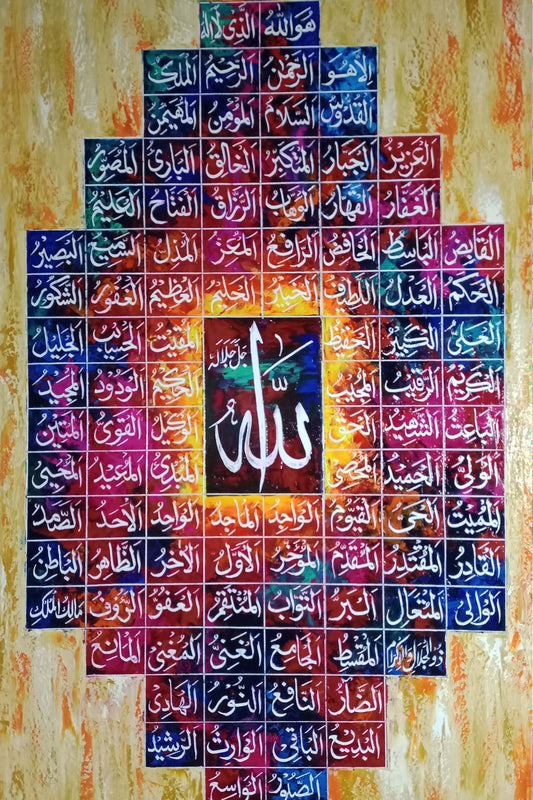 هُوَاللهُ الَّذِى لَا إِلٰهَ
إِلَّا هُوَ الرَّحْمٰنُ الرَّحِيْمُ الْمَلِكُ
الْقُدُّوْسُ السَّلَامُ الْمُؤْمِنُ الْمُهَيْمِنُ
الْعَزِيْزُ الْجَبَّارُ الْمُتَكَبِّرُ الْخَالِقُ الْبَارِئُ الْمُصَوِّرُ
الْغَفَّارُ الْقَهَّارُ الْوَهَّابُ الرَّزَّاقُ الْفَتَّاحُ الْعَلِيْمُ
الْقَابِضُ الْبَاسِطُ الْخَافِضُ الرَّافِعُ الْمُعِزُّ الْمُذِلُّ السَّمِيْعُ الْبَصِيْرُ
الْحَكَمُ الْعَدْلُ اللَّطِيْفُ الْخَبِيْرُ الْحَلِيْمُ الْعَظِيْمُ الْغَفُوْرُ الشَّكُوْرُ
الْعَلِىُّ الْكَبِيْرُ الْحَفِيْظُ الْمُقِيْتُ الْحَسِيْبُ الْجَلِيْلُ
الْكَرِيْمُ الرَّقِيْبُ الْمُجِيْبُ الْحَكِيْمُ الْوَدُوْدُ الْمَجِيْدُ
الْبَاعِثُ الشَّهِيْدُ الْحَقُّ الْوَكِيْلُ الْقَوِىُّ الْمَتِيْنُ
الْوَلِىُّ الْحَمِيْدُ الْمُحْصِى الْمُبْدِئُ الْمُعِيْدُ الْمُحْيِى
الله جَلَّ جَلَالُهُ
الْمُمِيْتُ الْحَىُّ الْقَيُّوْمُ الْوَاجِدُ الْمَاجِدُ الْوَاحِدُ الْاَحَدُ الصَّمَدُ
الْقَادِرُ الْمُقْتَدِرُ الْمُقَدِّمُ الْمُؤَخِّرُ الْاَوَّلُ الْاٰخِرُ الظَّاهِرُ الْبَاطِنُ
الْوَالِى الْمُتَعَالُ الْبَرُّ التَّوَّابُ الْمُنْتَقِمُ الْعَفُوُّ الرَّؤُفُ مَالِكُ الْمُلْكِ
ذُوالْجَلَالِ وَالْاِكْرَامِ الْمُقْسِطُ الْجَامِعُ الْغَنِىُّ الْمُغْنِى الْمَانِعُ
الضَّارُّ النَّافِعُ النُّوْرُ الْهَادِى
الْبَدِيْعُ الْبَاقِى الْوَارِثُ الرَّشِيْدُ
الصَّبُوْرُ الْوَاسِعُ